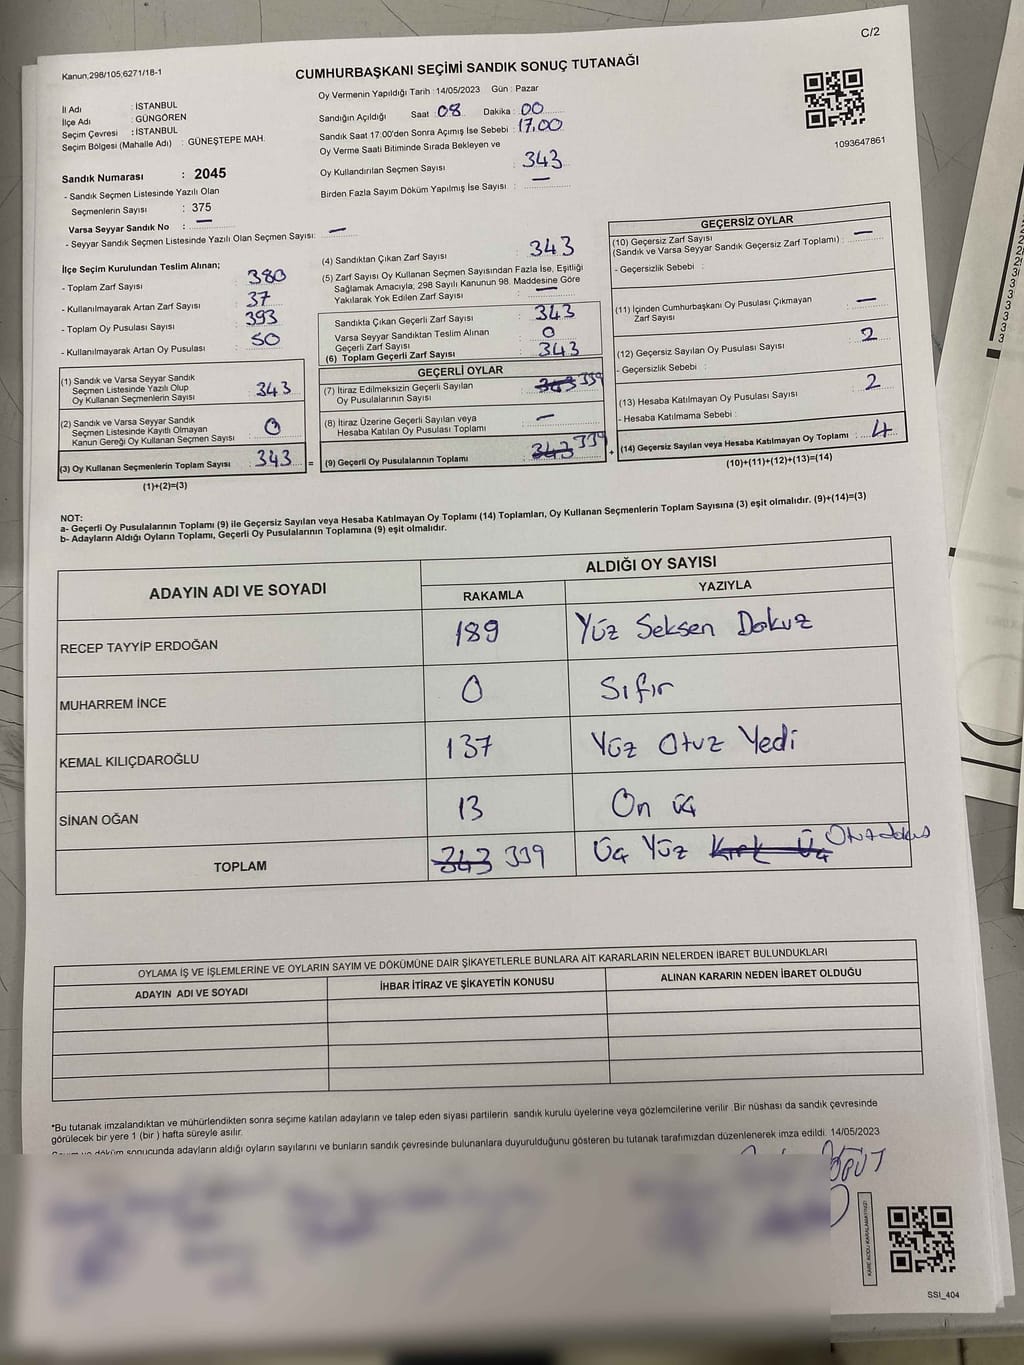 C/2
Kanun,298/105;6271/18-1
CUMHURBAŞKANI SEÇİMİ SANDIK SONUÇ TUTANAĞI
Oy Vermenin Yapıldığı Tarih : 14/05/2023 Gün : Pazar
İl Adı : İSTANBUL
İlçe Adı : GÜNGÖREN
Seçim Çevresi : İSTANBUL
Seçim Bölgesi (Mahalle Adı) : GÜNEŞTEPE MAH.
Sandığın Açıldığı Saat : 08 Dakika : 00
Sandık Saat 17:00'den Sonra Açımış İse Sebebi : 17.00
Oy Verme Saati Bitiminde Sırada Bekleyen ve
Oy Kullandırılan Seçmen Sayısı : 343
Birden Fazla Sayım Döküm Yapılmış İse Sayısı : —
1093647861
Sandık Numarası : 2045
- Sandık Seçmen Listesinde Yazılı Olan
Seçmenlerin Sayısı : 375
Varsa Seyyar Sandık No : —
- Seyyar Sandık Seçmen Listesinde Yazılı Olan Seçmen Sayısı: —
İlçe Seçim Kurulundan Teslim Alınan;
- Toplam Zarf Sayısı : 380
- Kullanılmayarak Artan Zarf Sayısı : 37
- Toplam Oy Pusulası Sayısı : 393
- Kullanılmayarak Artan Oy Pusulası : 50
(1) Sandık ve Varsa Seyyar Sandık
Seçmen Listesinde Yazılı Olup
Oy Kullanan Seçmenlerin Sayısı : 343
(2) Sandık ve Varsa Seyyar Sandık
Seçmen Listesinde Kayıtlı Olmayan
Kanun Gereği Oy Kullanan Seçmen Sayısı : 0
(3) Oy Kullanan Seçmenlerin Toplam Sayısı : 343 =
(1)+(2)=(3)
(4) Sandıktan Çıkan Zarf Sayısı : 343
(5) Zarf Sayısı Oy Kullanan Seçmen Sayısından Fazla İse, Eşitliği
Sağlamak Amacıyla; 298 Sayılı Kanunun 98. Maddesine Göre
Yakılarak Yok Edilen Zarf Sayısı : —
Sandıkta Çıkan Geçerli Zarf Sayısı : 343
Varsa Seyyar Sandıktan Teslim Alınan
Geçerli Zarf Sayısı : 0
(6) Toplam Geçerli Zarf Sayısı : 343
GEÇERLİ OYLAR
(7) İtiraz Edilmeksizin Geçerli Sayılan
Oy Pusulalarının Sayısı : 343 339
(8) İtiraz Üzerine Geçerli Sayılan veya
Hesaba Katılan Oy Pusulası Toplamı : —
(9) Geçerli Oy Pusulalarının Toplamı : 343 339 +
GEÇERSİZ OYLAR
(10) Geçersiz Zarf Sayısı
(Sandık ve Varsa Seyyar Sandık Geçersiz Zarf Toplamı) : —
- Geçersizlik Sebebi :
(11) İçinden Cumhurbaşkanı Oy Pusulası Çıkmayan
Zarf Sayısı : —
(12) Geçersiz Sayılan Oy Pusulası Sayısı : 2
- Geçersizlik Sebebi :
(13) Hesaba Katılmayan Oy Pusulası Sayısı : 2
- Hesaba Katılmama Sebebi :
(14) Geçersiz Sayılan veya Hesaba Katılmayan Oy Toplamı : 4
(10)+(11)+(12)+(13)=(14)
NOT:
a- Geçerli Oy Pusulalarının Toplamı (9) ile Geçersiz Sayılan veya Hesaba Katılmayan Oy Toplamı (14) Toplamları, Oy Kullanan Seçmenlerin Toplam Sayısına (3) eşit olmalıdır. (9)+(14)=(3)
b- Adayların Aldığı Oyların Toplamı, Geçerli Oy Pusulalarının Toplamına (9) eşit olmalıdır.
ADAYIN ADI VE SOYADI
ALDIĞI OY SAYISI
RAKAMLA YAZIYLA
RECEP TAYYİP ERDOĞAN 189 Yüz Seksen Dokuz
MUHARREM İNCE 0 Sıfır
KEMAL KILIÇDAROĞLU 137 Yüz Otuz Yedi
SİNAN OĞAN 13 On üç
TOPLAM 343 339 Üç Yüz Kırk Üç
OYLAMA İŞ VE İŞLEMLERİNE VE OYLARIN SAYIM VE DÖKÜMÜNE DAİR ŞİKAYETLERLE BUNLARA AİT KARARLARIN NELERDEN İBARET BULUNDUKLARI
ADAYIN ADI VE SOYADI İHBAR İTİRAZ VE ŞİKAYETİN KONUSU ALINAN KARARIN NEDEN İBARET OLDUĞU
*Bu tutanak imzalandıktan ve mühürlendikten sonra seçime katılan adayların ve talep eden siyasi partilerin sandık kurulu üyelerine veya gözlemcilerine verilir .Bir nüshası da sandık çevresinde
görülecek bir yere 1 (bir ) hafta süreyle asılır.
döküm sonucunda adayların aldığı oyların sayılarını ve bunların sandık çevresinde bulunanlara duyurulduğunu gösteren bu tutanak tarafımızdan düzenlenerek imza edildi. 14/05/2023
KARE KODU KARALAMAYINIZ!
SSI_404